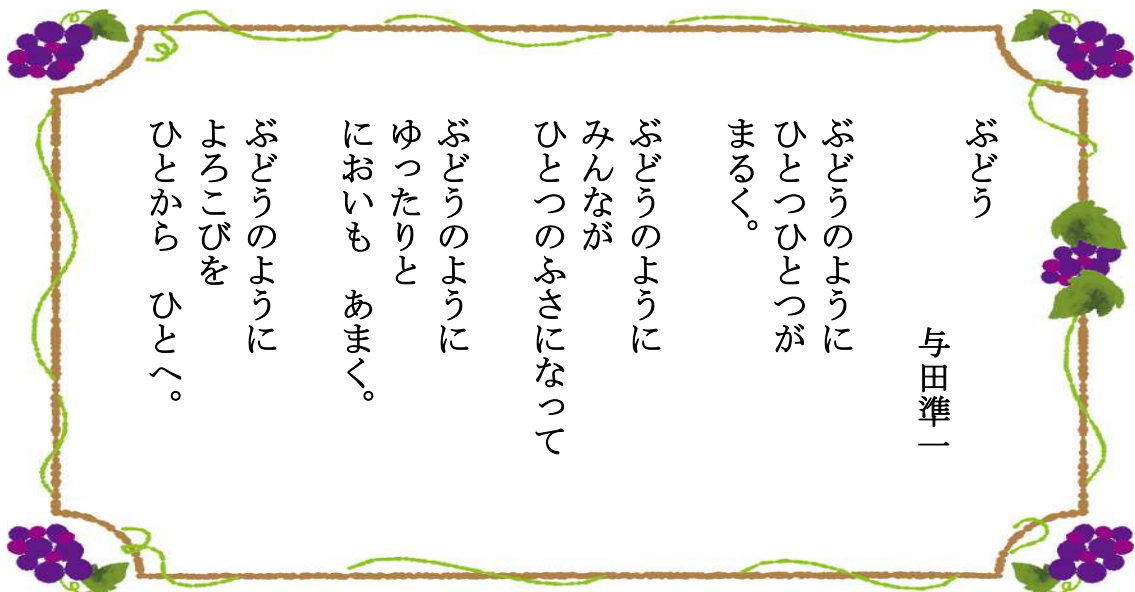 ぶどう
与田準一
ぶどうのように
ひとつひとつが
まるく。
ぶどうのように
みんなが
ひとつのふさになって
ぶどうのように
ゆったりと
においも　あまく。
ぶどうのように
よろこびを
ひとから　ひとへ。